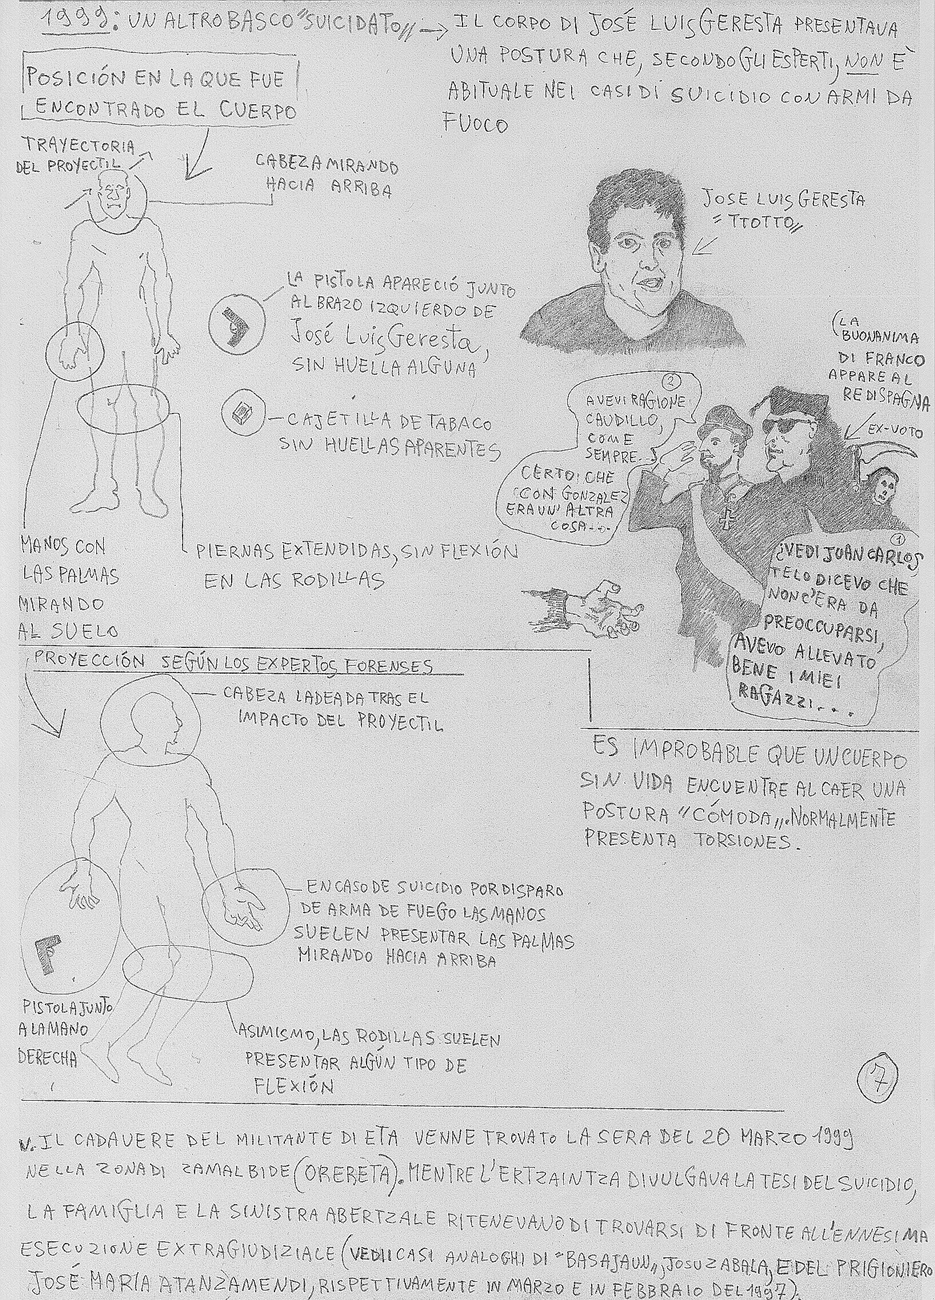 1999: UN ALTRO BASCO "SUICIDATO" →
IL CORPO DI JOSÉ LUIS GERESTA PRESENTAVA
UNA POSTURA CHE, SECONDO GLI ESPERTI, NON È
ABITUALE NEI CASI DI SUICIDIO CON ARMI DA
FUOCO
POSICIÓN EN LA QUE FUE
ENCONTRADO EL CUERPO
TRAYECTORIA
DEL PROYECTIL
CABEZA MIRANDO
HACIA ARRIBA
JOSE LUIS GERESTA
"TTOTTO"
LA PISTOLA APARECIÓ JUNTO
AL BRAZO IZQUIERDO DE
José Luis Geresta,
SIN HUELLA ALGUNA
CAJETILLA DE TABACO
SIN HUELLAS APARENTES
(LA
BUONANIMA
DI FRANCO
APPARE AL
RE DI SPAGNA
EX-VOTO
2
AVEVI RAGIONE
CAUDILLO,
COME
SEMPRE...
CERTO: CHE
CON GONZALEZ
ERA UN'ALTRA
COSA...
1
¿VEDI JUAN CARLOS,
TE LO DICEVO CHE
NON C'ERA DA
PREOCCUPARSI,
AVEVO ALLEVATO
BENE I MIEI
RAGAZZI....
MANOS CON
LAS PALMAS
MIRANDO
AL SUELO
PIERNAS EXTENDIDAS, SIN FLEXIÓN
EN LAS RODILLAS
PROYECCIÓN SEGÚN LOS EXPERTOS FORENSES
CABEZA LADEADA TRAS EL
IMPACTO DEL PROYECTIL
ES IMPROBABLE QUE UN CUERPO
SIN VIDA ENCUENTRE AL CAER UNA
POSTURA "CÓMODA". NORMALMENTE
PRESENTA TORSIONES.
EN CASO DE SUICIDIO POR DISPARO
DE ARMA DE FUEGO LAS MANOS
SUELEN PRESENTAR LAS PALMAS
MIRANDO HACIA ARRIBA
PISTOLA JUNTO
A LA MANO
DERECHA
ASIMISMO, LAS RODILLAS SUELEN
PRESENTAR ALGÚN TIPO DE
FLEXIÓN
7
IL CADAVERE DEL MILITANTE DI ETA VENNE TROVATO LA SERA DEL 20 MARZO 1999
NELLA ZONA DI ZAMALBIDE (ORERETA). MENTRE L'ERTZAINTZA DIVULGAVA LA TESI DEL SUICIDIO,
LA FAMIGLIA E LA SINISTRA ABERTZALE RITENEVANO DI TROVARSI DI FRONTE ALL'ENNESIMA
ESECUZIONE EXTRAGIUDIZIALE (VEDI I CASI ANALOGHI DI "BASAJAUN", JOSU ZABALA, E DEL PRIGIONIERO
JOSÉ MARÍA ATANZAMENDI, RISPETTIVAMENTE IN MARZO E IN FEBBRAIO DEL 1997).